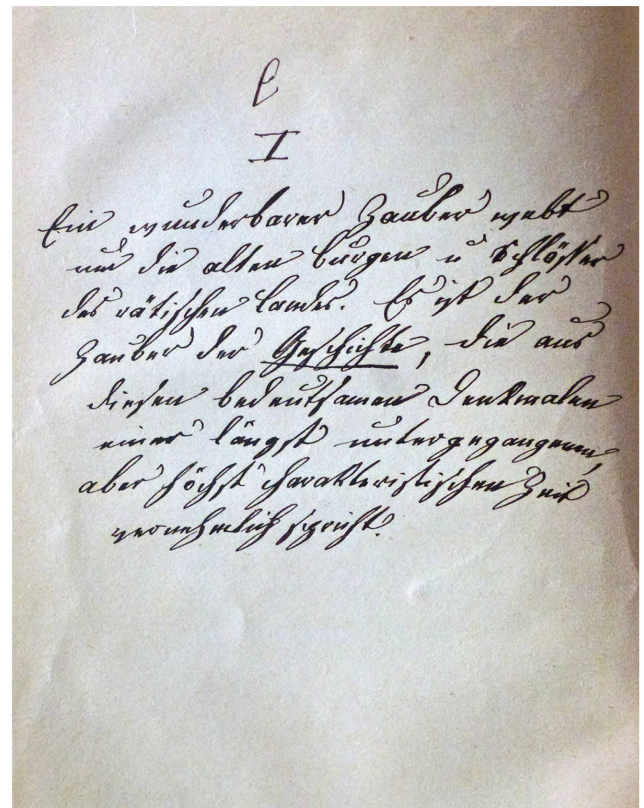 l
I
Ein wunderbarer Zauber webt
um die alten Burgen u. Schlösser
des rätischen Landes. Es ist der
Zauber der Geschichte, die aus
diesen bedeutsamen Denkmalen
einer längst untergegangenen,
aber höchst charakteristischen Zeit
vernehmlich spricht.